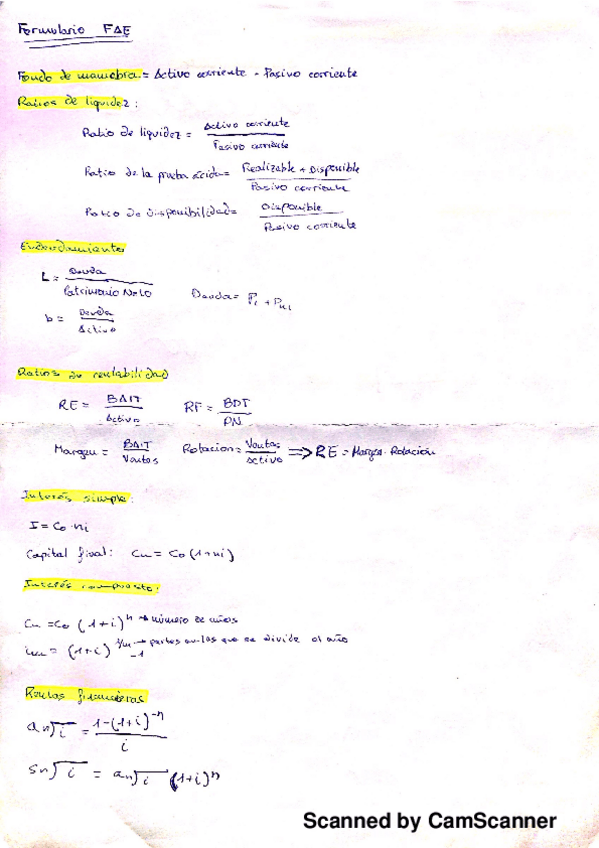 Formulario FAE
Fondo de maniobra = Activo corriente - Pasivo corriente
Ratios de liquidez:
Ratio de liquidez = Activo corriente / Pasivo corriente
Ratio de la prueba ácida = Realizable + Disponible / Pasivo corriente
Ratio de disponibilidad = Disponible / Pasivo corriente
Endeudamiento
L = Deuda / Patrimonio Neto
Deuda = Pc + Pnc
b = Deuda / Activo
Ratios de rentabilidad
RE = BAIT / Activo RF = BDT / PN
Margen = BAIT / Ventas Rotacion = Ventas / Activo => RE = Margen · Rotación
Interés simple:
I = Co · ni
Capital final: Cn = Co (1+ni)
Interés compuesto:
Cn = Co (1+i)^n → número de años
im = (1+i)^1/m → partes en las que se divide el año -1
Rentas financieras
an┐i = 1-(1+i)^-n / i
Sn┐i = an┐i (1+i)^n
Scanned by CamScanner